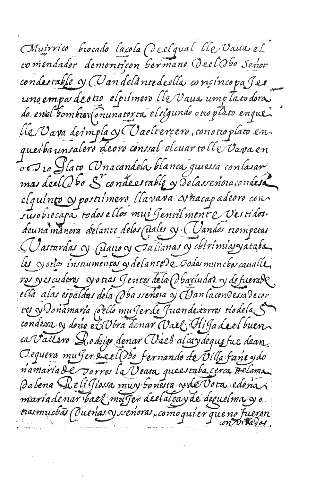 Muj rrico brocado la cola de el qual lle Vava el
comendador de montiçon hermano de el dho señor
condestable y Van delante de ella con cinco pajes
uno empos de otro el primero lle Vava un plato dora
do en el hombro con una torta el segundo otro plato en que
lle Vava de impla y Va el tercero, con otro plato en
que iba un salero de oro con sal el cuarto lle Vava en
otro Plato Una candela blanca guiessa con las ar
mas de el dho Sr condestable y de la señora condesa
el quinto y postrimero lle vava Un capadero con
su sobrecopa todos ellos muj gentilmente Vestidos
de una manera delante de los cuales y Van dos trompetas
Vastardas y clavo y Talianas y chirimias y ataba
les y otros instrumentos y delante de todas muchos cavalle
ros y escuderos y otras gentes de la dha ciudad y de fuera de
ella a las espaldas de la dha señora y Van la condesa de cor
tes y Doña maria Solis mujer de Juan de torres tio de la Sa
condesa y doña elvira de nar Vaez Hija de el buen
Cavallero Rodrigo de nar Vaez alcayde que fue de an
Tequera mujer de el dho fernando de Villa fañe y do
ña maria de torres la Veata que estaba cerca de la ma
Dalena Religiosa muy honesta y de Vota e doña
maria de nar baez mujer de el alcayde de Requelma y o
tras muchas dueñas y señoras, como quier que no fueron
combidadas